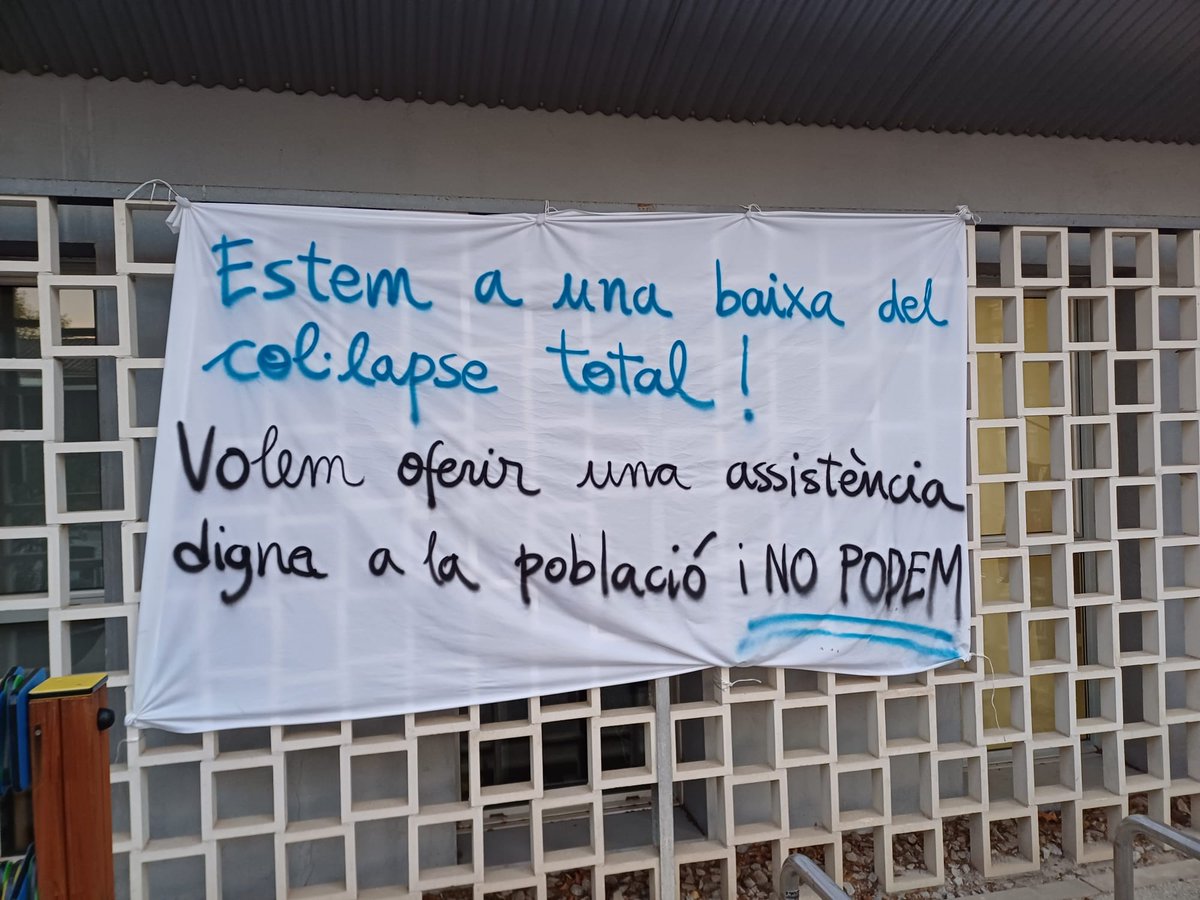 Estem a una baixa del
col·lapse total!
Volem oferir una assistència
digna a la població i NO PODEM